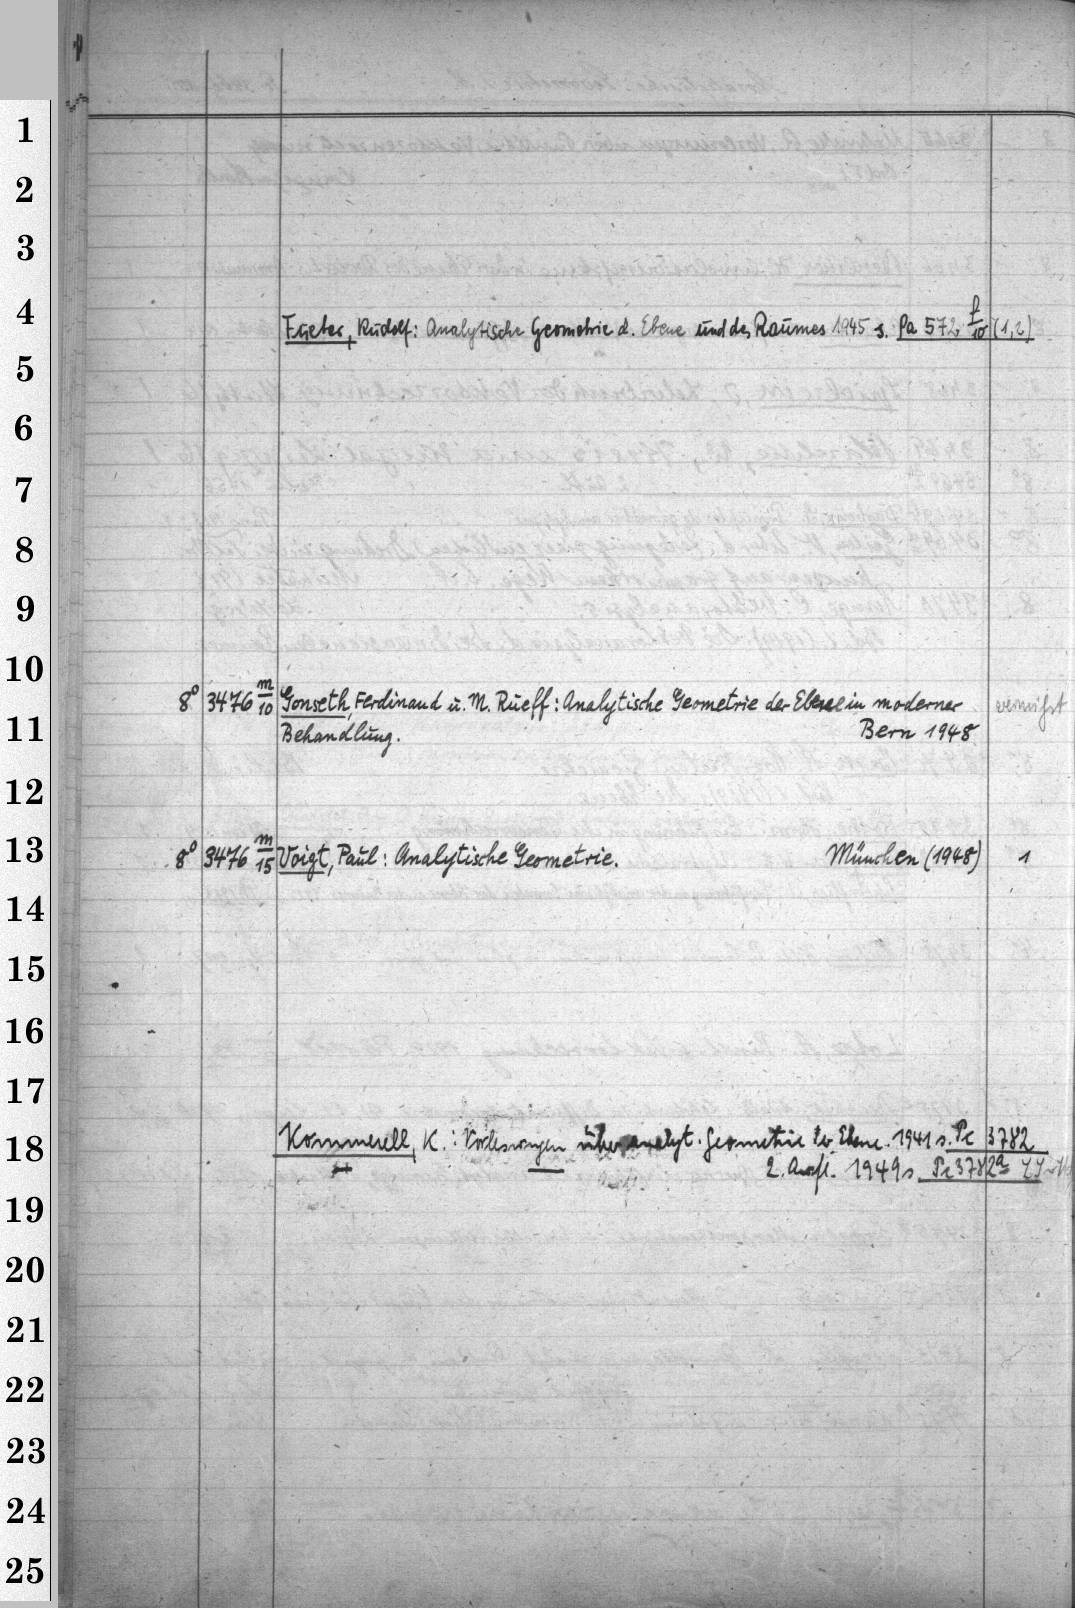 1
2
3
4 Fueter, Rudolf: Analytische Geometrie d. Ebene und des Raumes 1945 s. Pa 572 f/10 (1,2)
5
6
7
8
9
10
8° 3476 m/10 Gonseth, Ferdinand u. M. Rueff: Analytische Geometrie der Ebene in moderner vermißt
11 Behandlung. Bern 1948
12
13 8° 3476 m/15 Voigt, Paul: Analytische Geometrie. München (1948) 1
14
15
16
17
18 Kommerell, K.: Vorlesungen über analyt. Geometrie der Ebene. 1941 s. Pc 3782
2. Aufl. 1949 s. Pc 3782a
19
20
21
22
23
24
25